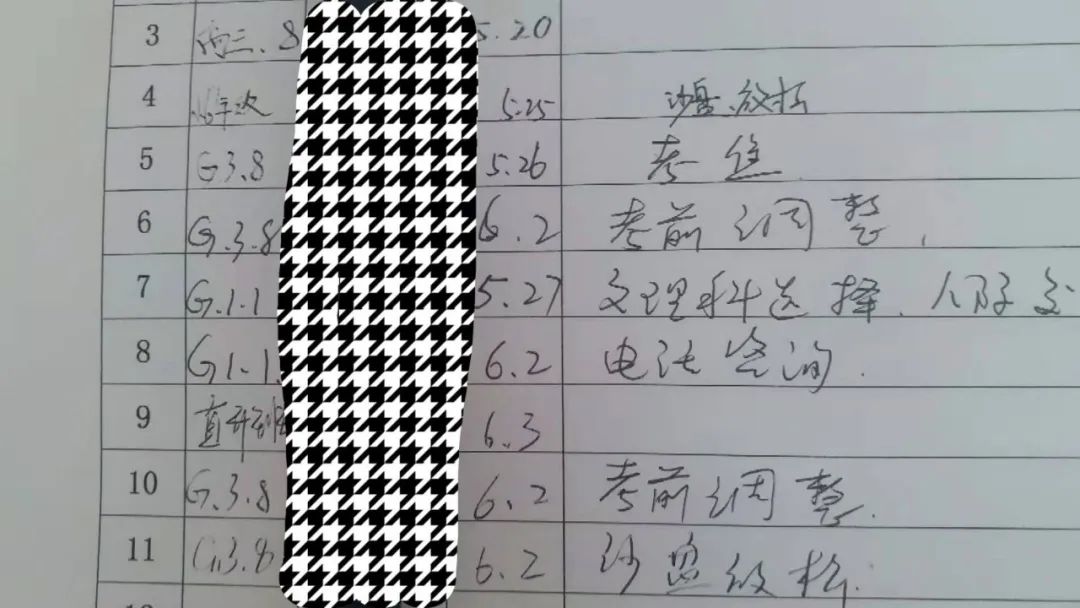 3 高三.8 5.20
4 5.25 沙盘.放松
5 G3.8 5.26 考焦
6 G.3.8 6.2 考前调整.
7 G.1.1 5.27 文理科选择.人际交
8 G1.1. 6.2 电话咨询.
9 直升 6.3
10 G.3.8 6.2 考前调整.
11 G.3.8 6.2 沙盘放松.